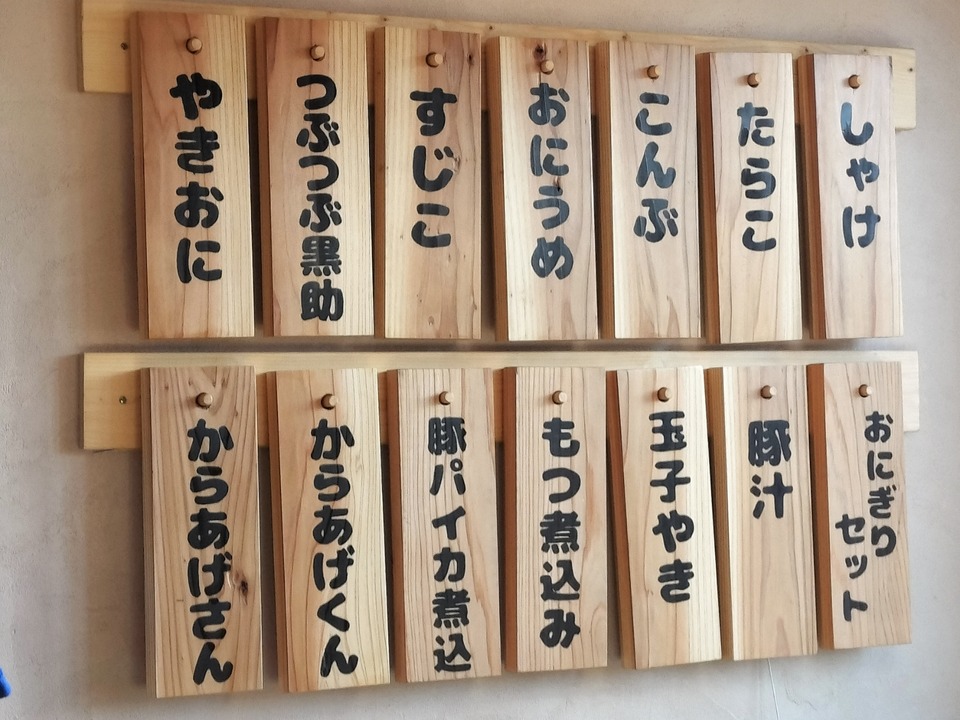 しゃけ
たらこ
こんぶ
おにうめ
すじこ
つぶつぶ黒助
やきおに
おにぎり
セット
豚汁
玉子やき
もつ煮込み
豚パイカ煮込
からあげくん
からあげさん